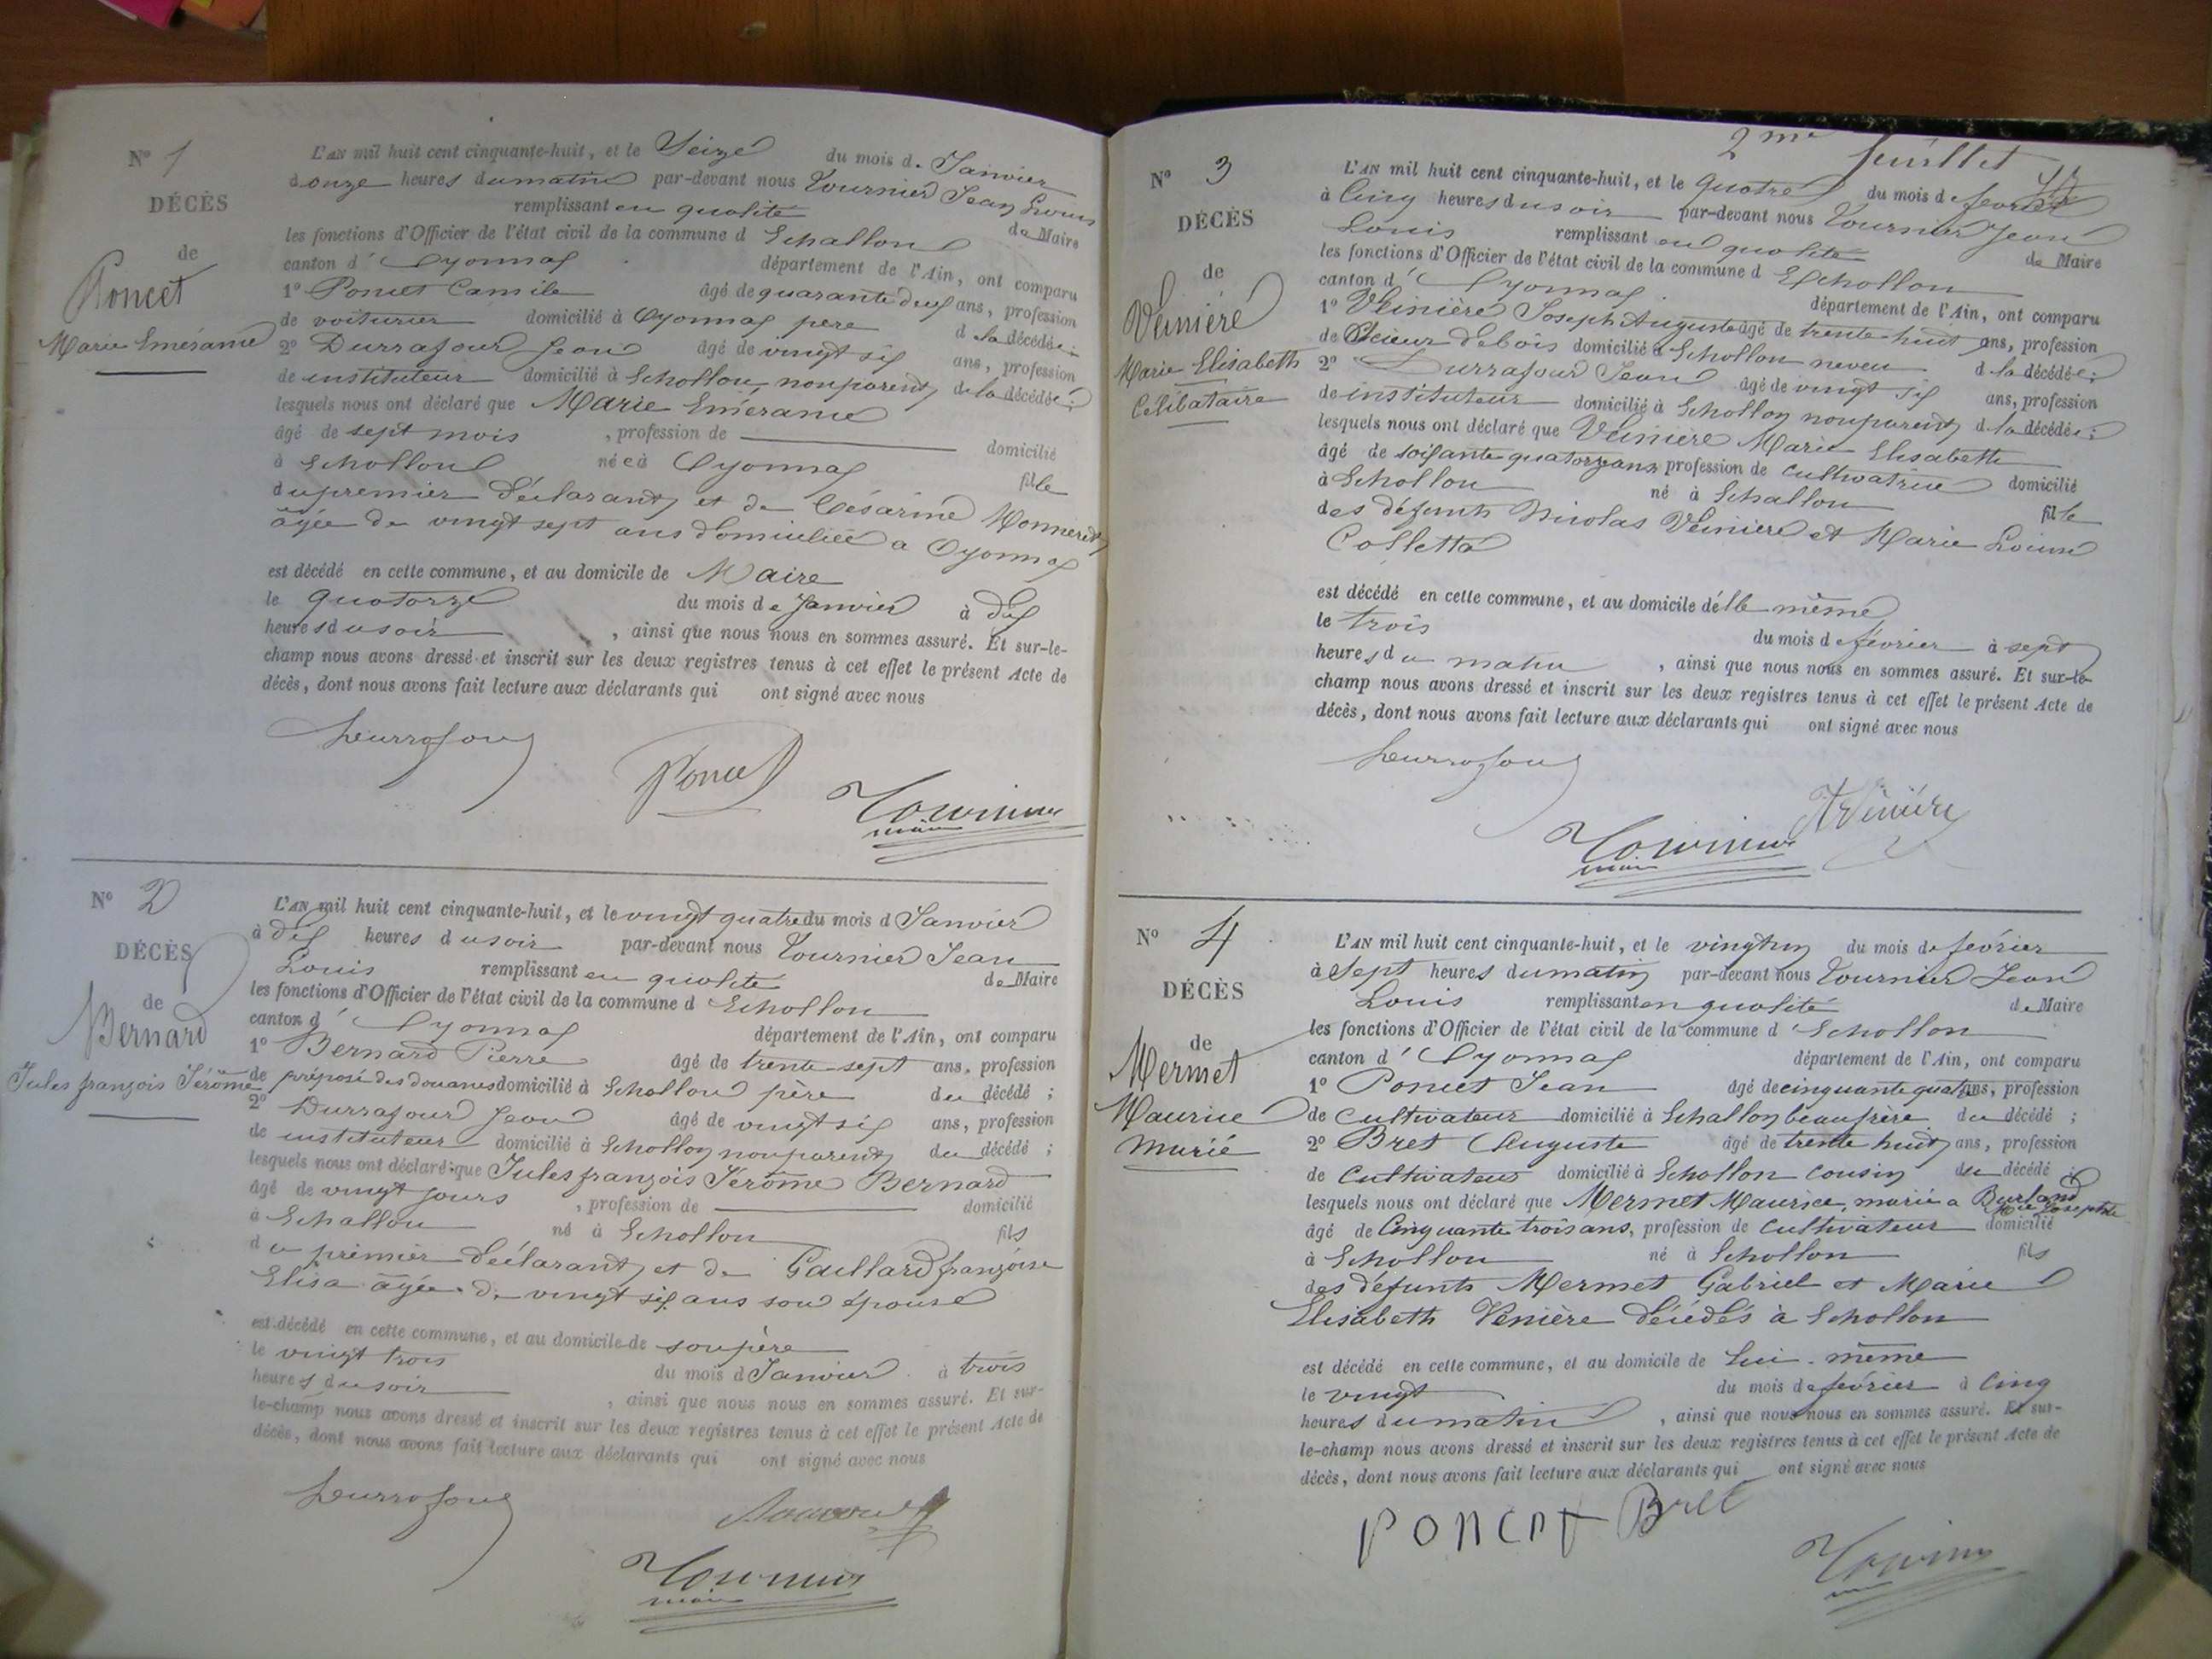 N° 1
DÉCÈS
de
Poncet
Marie Émérame
L'AN mil huit cent cinquante-huit, et le Seize du mois de Janvier
à onze heures du matin par-devant nous Tournier Jean Louis
remplissant en qualité de Maire
les fonctions d'Officier de l'état civil de la commune d Echallon
canton d' Oyonnax département de l'Ain, ont comparu
1° Poncet Camile âgé de quarante deux ans, profession
de voiturier domicilié à Oyonnax père d la décédée ;
2° Durrafour Jean âgé de vingt six ans, profession
de instituteur domicilié à Echollon, non parent, de la décédée ;
lesquels nous ont déclaré que Marie Émérame
âgé de sept mois , profession de domicilié
à Echollon née à Oyonnax fille
du premier déclarant, et de Césarine Monneret,
âgée de vingt sept ans domiciliée a Oyonnax
est décédé en cette commune, et au domicile de Maire
le quatorze du mois de Janvier à dix
heures du soir , ainsi que nous nous en sommes assuré. Et sur-le-
champ nous avons dressé et inscrit sur les deux registres tenus à cet effet le présent Acte de
décès, dont nous avons fait lecture aux déclarants qui ont signé avec nous
Durrafour
Poncet
Tournier
maire
N° 2
DÉCÈS
de
Bernard
Jules françois Jérôme
L'AN mil huit cent cinquante-huit, et le vingt quatre du mois d Janvier
à dix heures du soir par-devant nous Tournier Jean
Louis remplissant en qualité de Maire
les fonctions d'Officier de l'état civil de la commune d Echollon
canton d' Oyonnax département de l'Ain, ont comparu
1° Bernard Pierre âgé de trente sept ans, profession
de préposé des douanes domicilié à Echollon père du décédé ;
2° Durrafour Jean âgé de vingt six ans, profession
de instituteur domicilié à Echollon non parent, du décédé ;
lesquels nous ont déclaré que Jules françois Jérôme Bernard
âgé de vingt jours , profession de domicilié
à Echallon né à Echollon fils
du premier déclarant, et de Gaillard françoise
Elisa âgée de vingt six ans son épouse
est décédé en cette commune, et au domicile de son père
le vingt trois du mois d Janvier à trois
heures du soir , ainsi que nous nous en sommes assuré. Et sur-
le-champ nous avons dressé et inscrit sur les deux registres tenus à cet effet le présent Acte de
décès, dont nous avons fait lecture aux déclarants qui ont signé avec nous
Durrafour
Tournier
maire
2me feuillet
N° 3
DÉCÈS
de
Veinière
Marie Elisabeth
Célibataire
L'AN mil huit cent cinquante-huit, et le quatre du mois de fevrier
à Cinq heures du soir par-devant nous Tournier Jean
Louis remplissant en qualité de Maire
les fonctions d'Officier de l'état civil de la commune d Echollon
canton d' Oyonnax département de l'Ain, ont comparu
1° Veinière Joseph Auguste âgé de trente huit ans, profession
de Scieur de bois domicilié à Echollon neveu d la décédée ;
2° Durrafour Jean âgé de vingt six ans, profession
de instituteur domicilié à Echollon non parent, d la décédée ;
lesquels nous ont déclaré que Veinière Marie Elisabeth
âgé de soixante quatorze ans, profession de cultivatrice domicilié
à Echollon né à Echallon fille
des défunts Nicolas Veinière et Marie Louise
Colletta
est décédé en cette commune, et au domicile d'elle même
le trois du mois de février à sept
heures du matin , ainsi que nous nous en sommes assuré. Et sur-le-
champ nous avons dressé et inscrit sur les deux registres tenus à cet effet le présent Acte de
décès, dont nous avons fait lecture aux déclarants qui ont signé avec nous
Durrafour
Tournier
maire
N° 4
DÉCÈS
de
Mermet
Maurice
Marié
L'AN mil huit cent cinquante-huit, et le vingt un du mois de février
à Sept heures du matin par-devant nous Tournier Jean
Louis remplissant en qualité de Maire
les fonctions d'Officier de l'état civil de la commune d' Echollon
canton d' Oyonnax département de l'Ain, ont comparu
1° Poncet Jean âgé de cinquante quatre ans, profession
de Cultivateur domicilié à Echallon beau frère du décédé ;
2° Bret Auguste âgé de trente huit ans, profession
de Cultivateur domicilié à Echollon cousin du décédé ;
lesquels nous ont déclaré que Mermet Maurice, marié a Burland Mie Josephte
âgé de Cinquante trois ans, profession de Cultivateur domicilié
à Echollon né à Echollon fils
des défunts Mermet Gabriel et Marie
Elisabeth Venière décédés à Echollon
est décédé en cette commune, et au domicile de Lui-même
le vingt du mois de février à Cinq
heures du matin , ainsi que nous nous en sommes assuré. Et sur-
le-champ nous avons dressé et inscrit sur les deux registres tenus à cet effet le présent Acte de
décès, dont nous avons fait lecture aux déclarants qui ont signé avec nous
Poncet Bret
Tournier